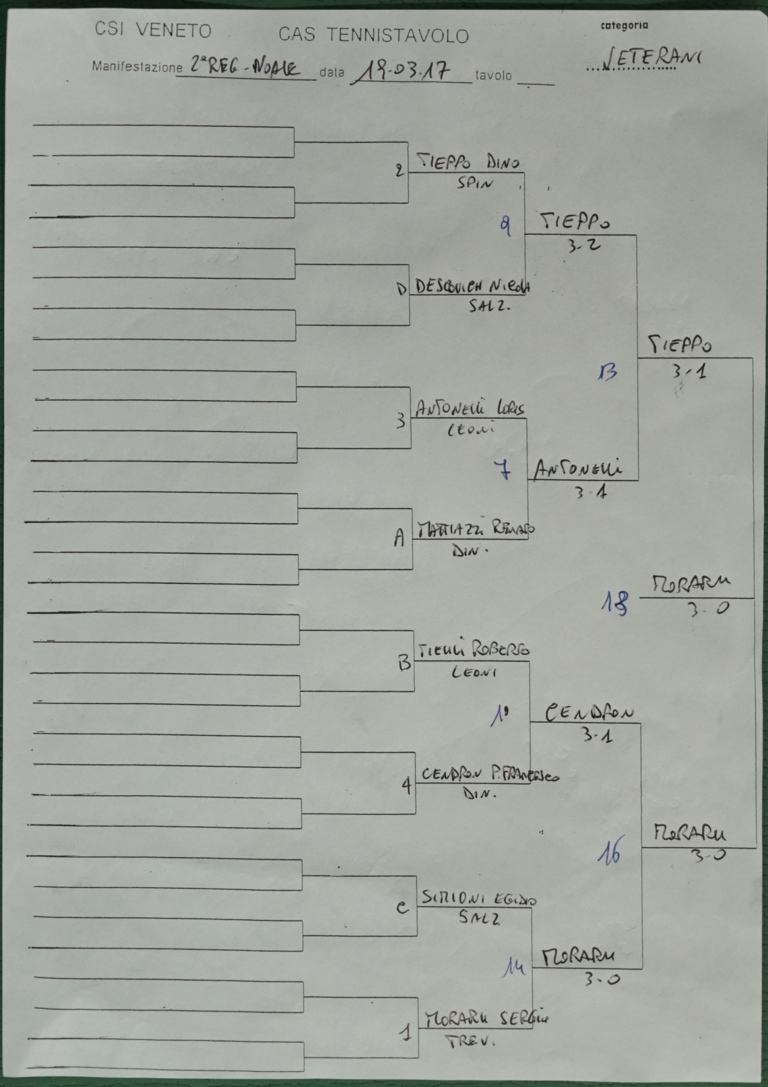 CSI VENETO CAS TENNISTAVOLO categoria
Manifestazione 2ª REG - NOALE data 19.03.17 tavolo VETERANI
2 TIEPPO DINO
SPIN
9 TIEPPO
3-2
D NICOLA
SALZ.
TIEPPO
13 3-1
3 ANTONELLI LORIS
LEONI
7 ANTONELLI
3-1
A MATTIAZZI RENATO
DIN.
18 MORARU
3-0
B ROBERTO
LEONI
CENDRON
3-1
4 CENDRON P.FRANCESCO
DIN.
16 MORARU
3-0
C SIMIONI EGIDIO
SALZ
14 MORARU
3-0
1 MORARU SERGIU
TREV.